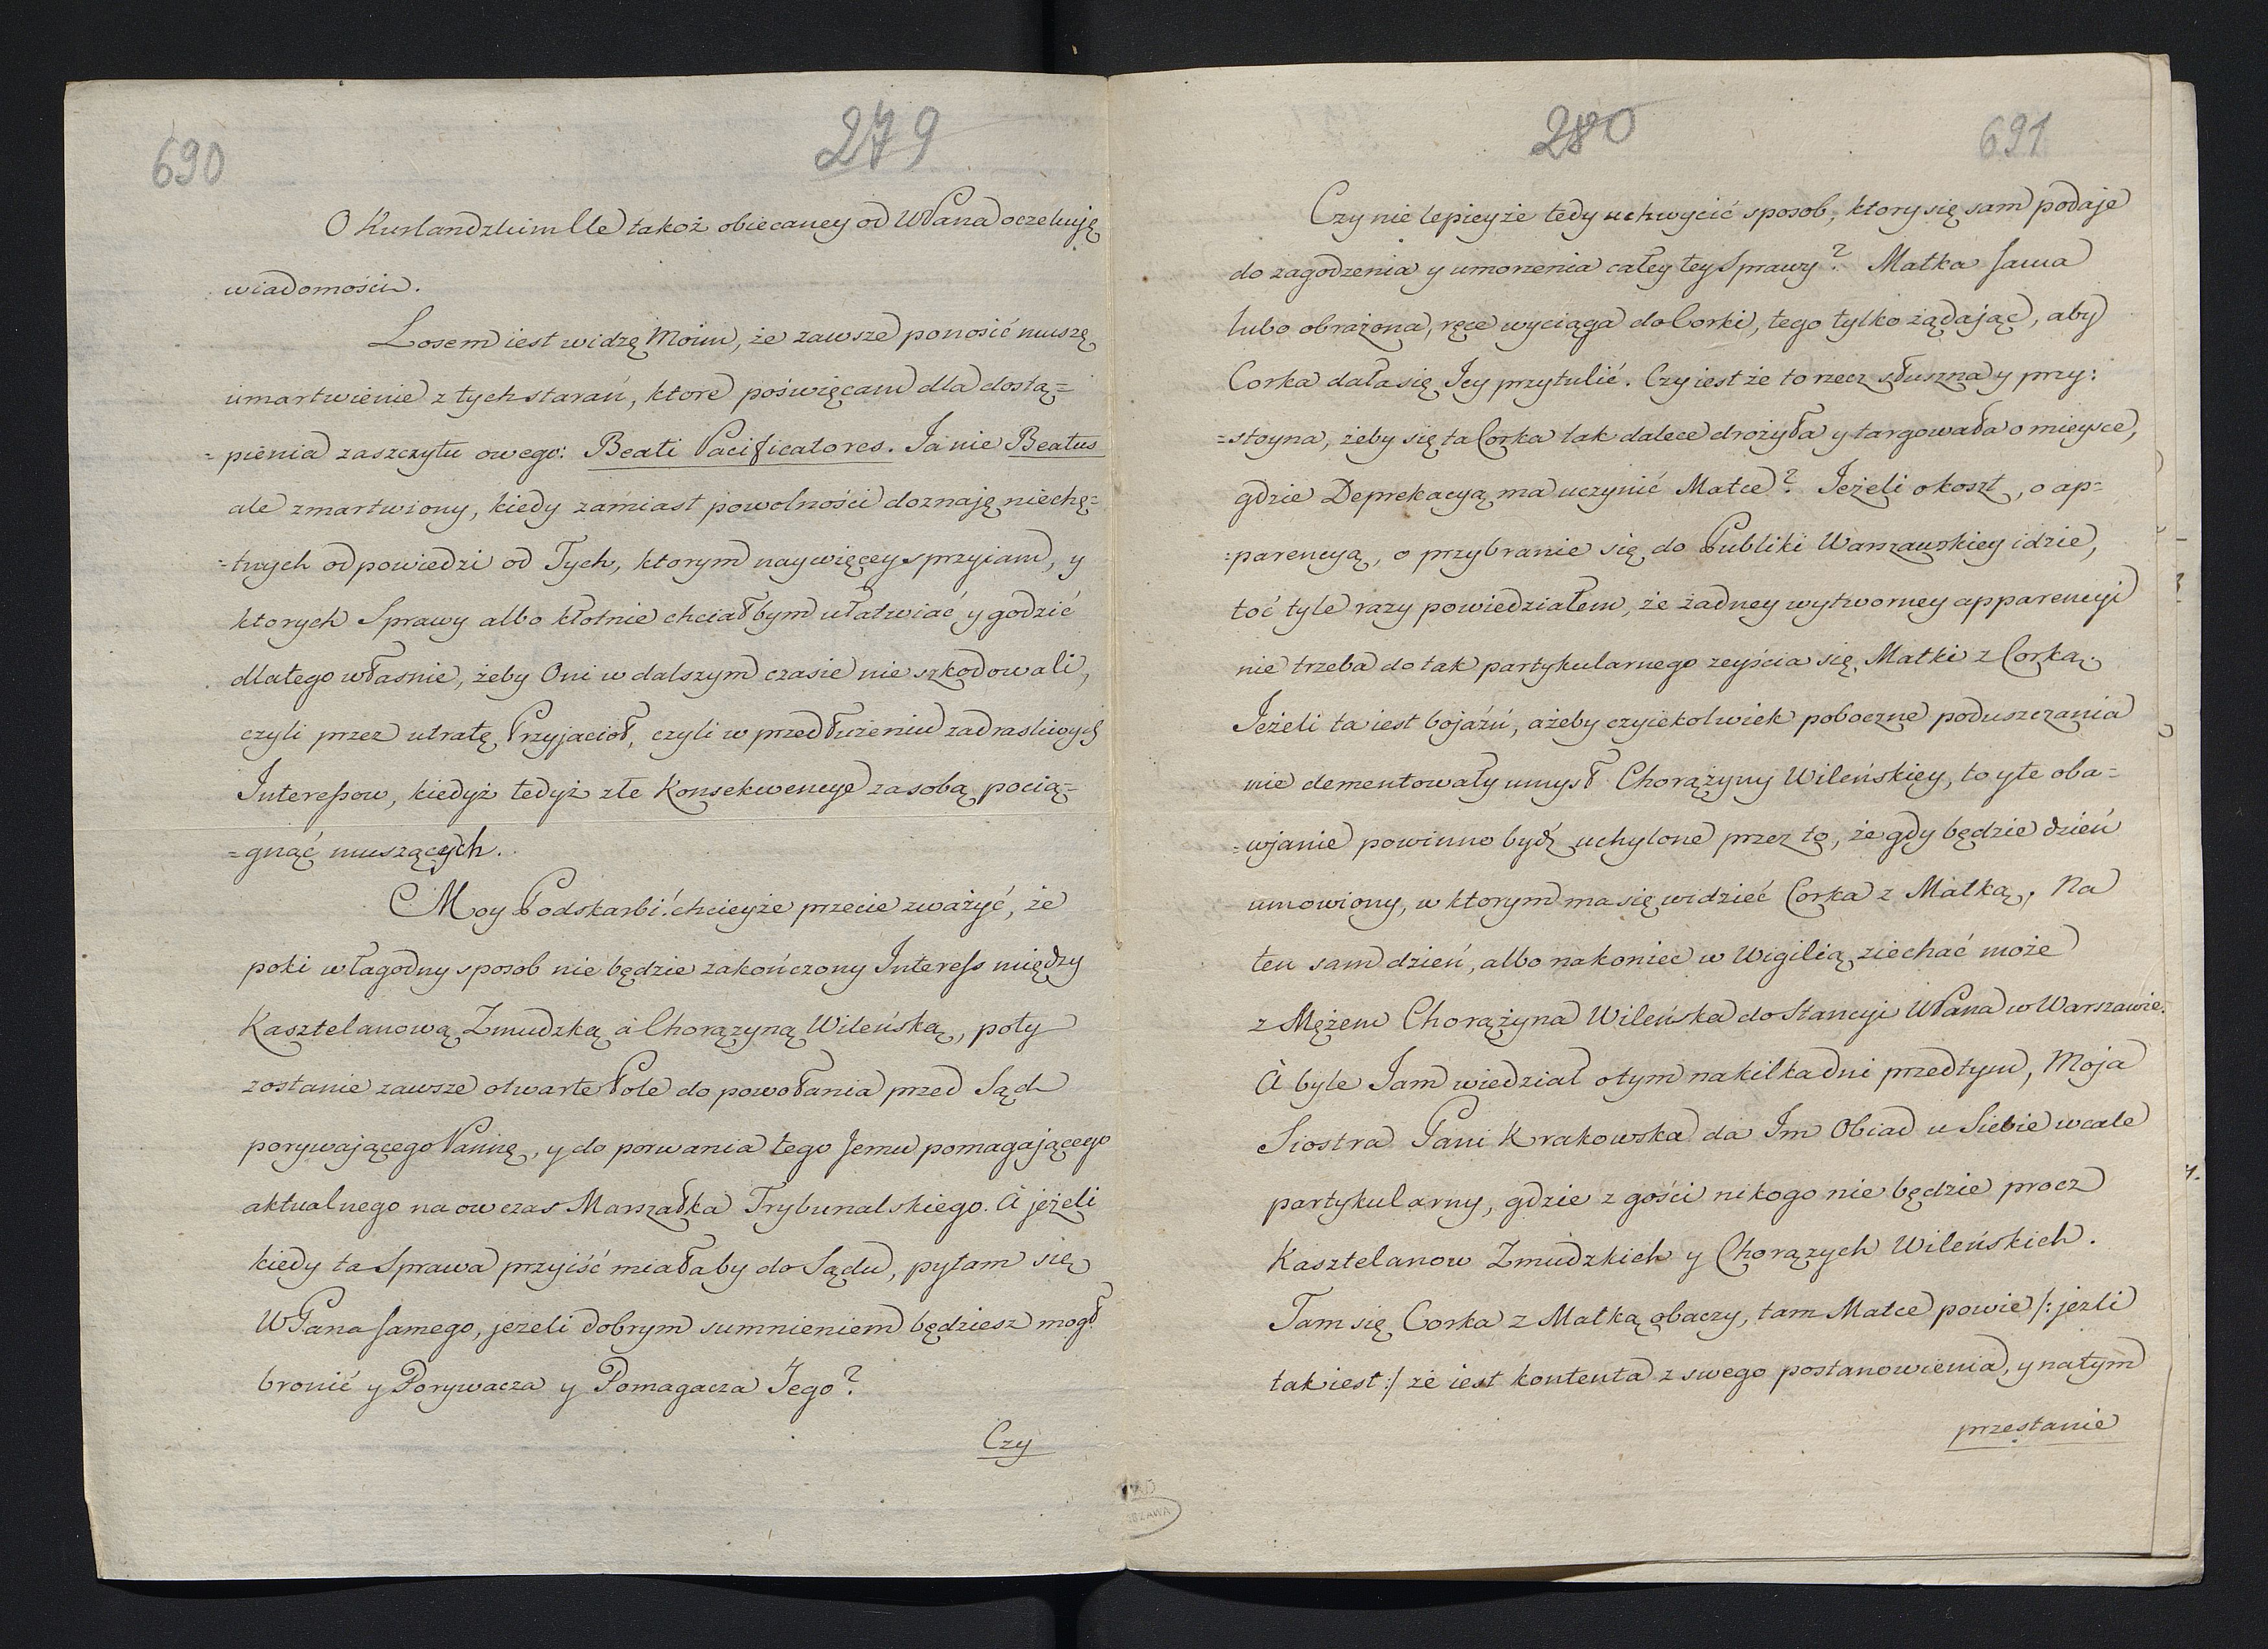 690
279
O Kurlandzkim Cle takoż obiecaney od WPana oczekuję
wiadomości.
Losem iest widzę Moim, że zawsze ponosić muszę
umartwienie z tych starań, ktore poświęcam dla dostą=
=pienia zaszczytu owego: Beati Pacificatores. Ja nie Beatus
ale zmartwiony, kiedy zamiast powolności doznaję niechę=
=tnych odpowiedzi od Tych, ktorym naywięcey sprzyiam, y
ktorych Sprawy albo kłotnie chciałbym ułatwiać y godzić
dlatego własnie, żeby Oni w dalszym czasie nie szkodowali,
czyli przez utratę Przyjacioł, czyli w przedłużeniu zadraśliwych
Interessow, kiedyż tedyż złe Konsekwencye za sobą pocią=
=gnąć muszących.
Moy Podskarbi! chcieyże przecie zważyć, że
poki w łagodny sposob nie będzie zakończony Interess między
Kasztelanową Zmudzką à Chorążyną Wileńską, poty
zostanie zawsze otwarte Pole do powołania przed Sąd
porywającego Pannę, y do porwania tego Jemu pomagającego
aktualnego na ow czas Marszałka Trybunalskiego. À jeżeli
kiedy ta Sprawa przyiść miałaby do Sądu, pytam się
WPana samego, jeżeli dobrym sumnieniem będziesz mogł
bronić y Porywacza y Pomagacza Jego?
Czy
280
691
Czy nie lepieyże tedy uchwycić sposob, ktory się sam podaje
do zagodzenia y umorzenia całey tey Sprawy? Matka sama
lubo obrażona, ręce wyciąga do Corki, tego tylko żądając, aby
Corka dała się Jey przytulić. Czy iest że to rzecz słuszna y przy:
=stoyna, żeby się ta Corka tak dalece drożyła y targowała o mieysce,
gdzie Deprekacyą ma uczynić Matce? Jeżeli o koszt, o ap=
=parencyą, o przybranie się do Publiki Warszawskiey idzie,
toć tyle razy powiedziałem, że żadney wytworney apparencyi
nie trzeba do tak partykularnego zeyścia się Matki z Corką.
Jeżeli ta iest bojaźń, ażeby czyiekolwiek poboczne poduszczania
nie dementowały umysł Chorążyny Wileńskiey, to y te oba=
=wjanie powinno bydź uchylone przez to, że gdy będzie dzień
umowiony, w ktorym ma się widzieć Corka z Matką; Na
ten sam dzień, albo nakoniec w Wigilią ziechać może
z Mężem Chorążyna Wileńska do Stancyi WPana w Warszawie.
À byle Jam wiedział o tym na kilka dni przedtym, Moja
Siostra Pani Krakowska da Im Obiad u Siebie wcale
partykularny, gdzie z gości nikogo nie będzie procz
Kasztelanow Zmudzkich y Chorążych Wileńskich.
Tam się Corka z Matką obaczy, tam Matce powie /: jeżli
tak iest :/ że iest kontenta z swego postanowienia, y na tym
przestanie